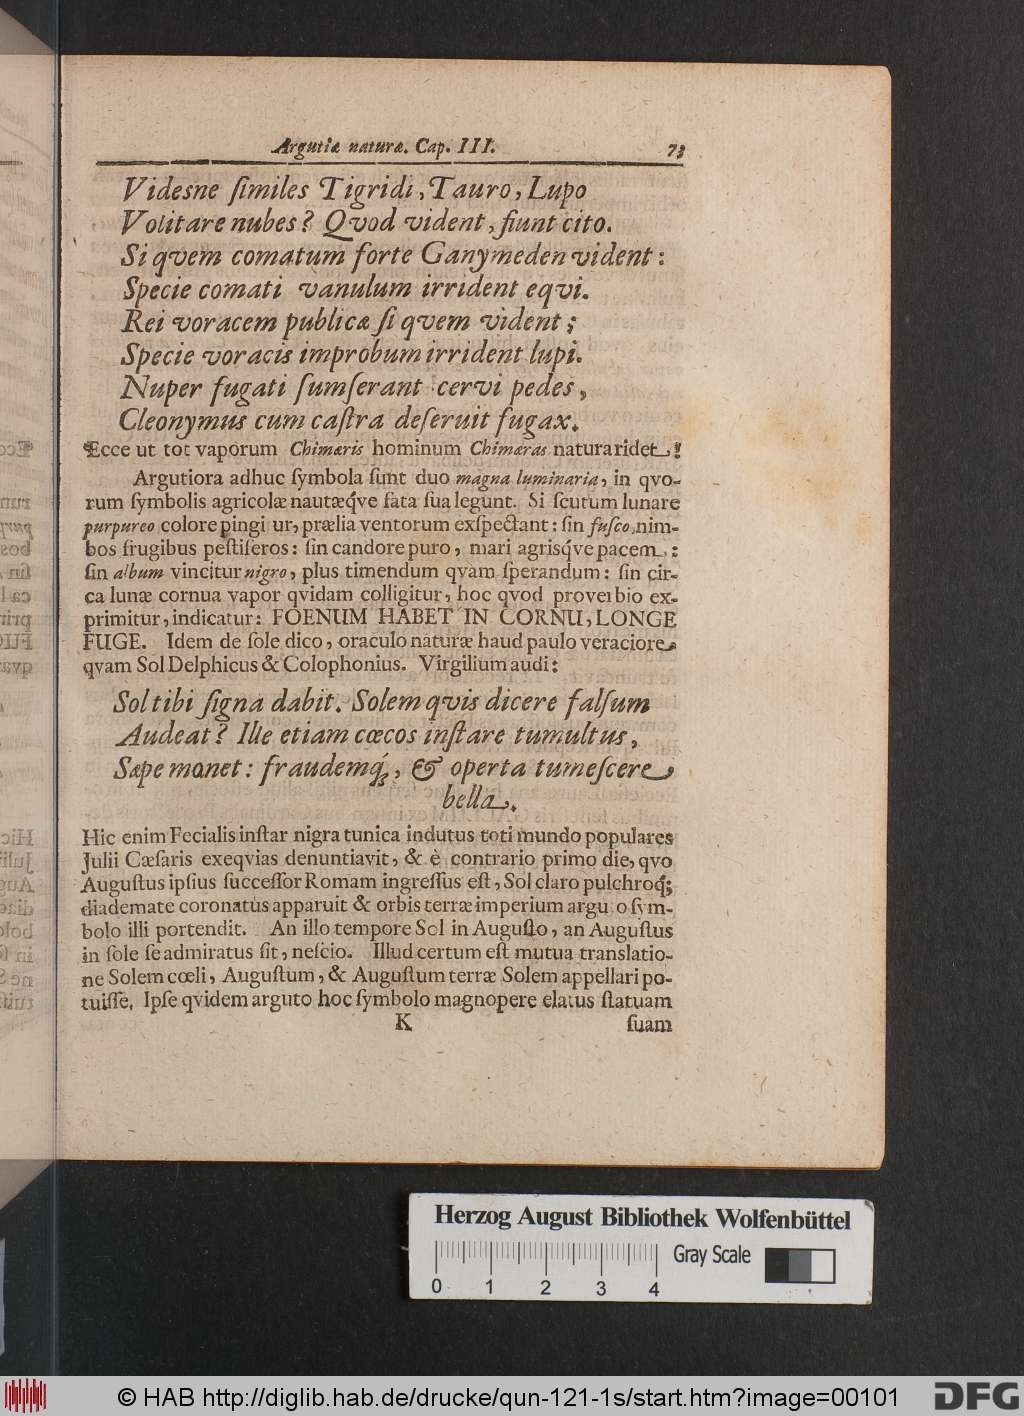 Argutiæ naturæ. Cap. III. 73
Videsne ſimiles Tigridi, Tauro, Lupo
Volitare nubes? Qvod vident, fiunt cito.
Si qvem comatum forte Ganymeden vident:
Specie comati vanulum irrident eqvi.
Rei voracem publicæ ſi qvem vident;
Specie voracis improbum irrident lupi.
Nuper fugati ſumſerant cervi pedes,
Cleonymus cum caſtra deſeruit fugax.
Ecce ut tot vaporum Chimæris hominum Chimæras natura ridet!
Argutiora adhuc ſymbola ſunt duo magna luminaria, in qvo-
rum ſymbolis agricolæ nautæq́ve fata ſua legunt. Si ſcutum lunare
purpureo colore pingi ur, prælia ventorum exſpectant: ſin fuſco, nim-
bos frugibus peſtiferos: ſin candore puro, mari agrisq́ve pacem:
ſin album vincitur nigro, plus timendum qvam ſperandum: ſin cir-
ca lunæ cornua vapor qvidam colligitur, hoc qvod proverbio ex-
primitur, indicatur: FOENUM HABET IN CORNU, LONGE
FUGE. Idem de ſole dico, oraculo naturæ haud paulo veraciore
qvam Sol Delphicus & Colophonius. Virgilium audi:
Sol tibi ſigna dabit. Solem qvis dicere falſum
Audeat? Ille etiam cœcos inſtare tumultus,
Sæpe monet: fraudemq́;, & operta tumeſcere
bella.
Hic enim Fecialis inſtar nigra tunica indutus toti mundo populares
Julii Cæſaris exeqvias denuntiavit, & è contrario primo die, qvo
Auguſtus ipſius ſucceſſor Romam ingreſſus eſt, Sol claro pulchroq́;
diademate coronatus apparuit & orbis terræ imperium argu o ſym-
bolo illi portendit. An illo tempore Sol in Auguſto, an Auguſtus
in ſole ſe admiratus ſit, neſcio. Illud certum eſt mutua translatio-
ne Solem cœli, Auguſtum, & Auguſtum terræ Solem appellari po-
tuiſſe. Ipſe qvidem arguto hoc ſymbolo magnopere elatus ſtatuam
K ſuam
Herzog August Bibliothek Wolfenbüttel
Gray Scale
0 1 2 3 4
© HAB http://diglib.hab.de/drucke/qun-121-1s/start.htm?image=00101
DFG